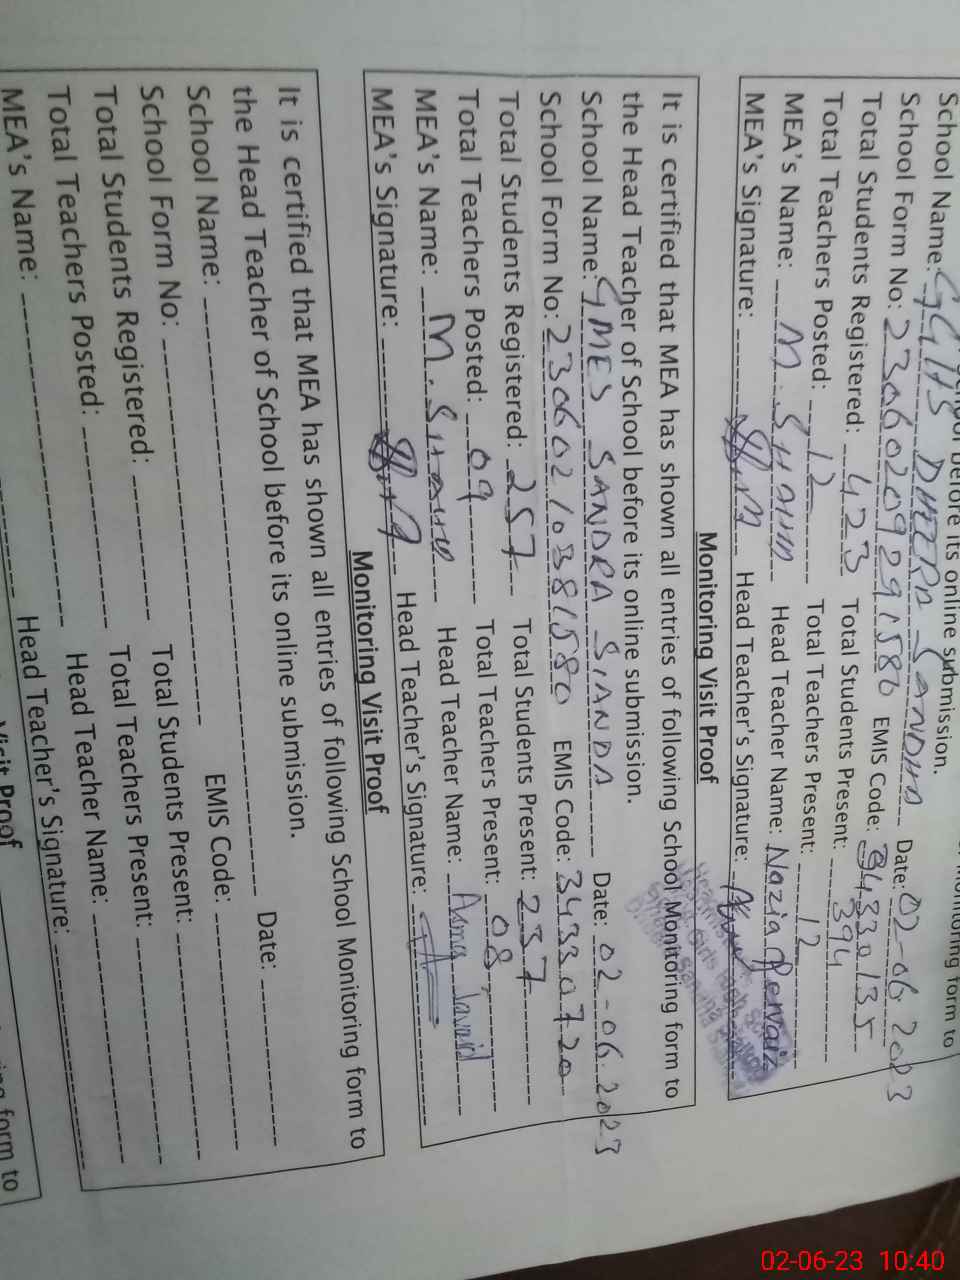 School before its online submission.
School Name: GGHS DHERA SANDHA Date: 02-06-2023
School Form No: EMIS Code: 34330135
Total Students Registered: 423 Total Students Present: 394
Total Teachers Posted: 12 Total Teachers Present: 12
MEA's Name: M. SHAHH Head Teacher Name: Nazia Pervaiz
MEA's Signature: Head Teacher's Signature:
Monitoring Visit Proof
It is certified that MEA has shown all entries of following School Monitoring form to
the Head Teacher of School before its online submission.
School Name: GMES SANDRA SIANDA Date: 02-06-2023
School Form No: 23060210381580 EMIS Code: 34330720
Total Students Registered: 257 Total Students Present: 237
Total Teachers Posted: 09 Total Teachers Present: 08
MEA's Name: M. Head Teacher Name: Asma Javaid
MEA's Signature: Head Teacher's Signature:
Monitoring Visit Proof
It is certified that MEA has shown all entries of following School Monitoring form to
the Head Teacher of School before its online submission.
School Name: Date:
School Form No: EMIS Code:
Total Students Registered: Total Students Present:
Total Teachers Posted: Total Teachers Present:
MEA's Name: Head Teacher Name:
Head Teacher's Signature:
Visit Proof
form to
02-06-23 10:40